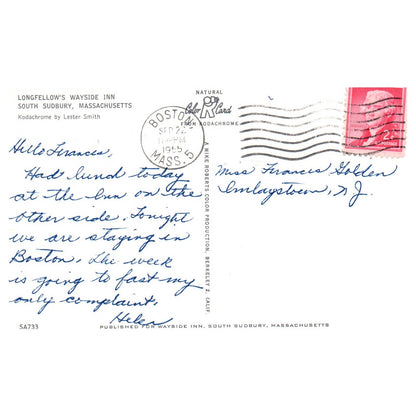 LONGFELLOW'S WAYSIDE INN
SOUTH SUDBURY, MASSACHUSETTS
Kodachrome by Lester Smith
NATURAL
Color Card
FROM KODACHROME
BOSTON
SEP 22
PM
1955
MASS. 5
2¢
Hello Frances,
Had lunch today
at the Inn on the
other side. Tonight
we are staying in
Boston. The week
is going to fast my
only complaint.
Helen
A MIKE ROBERTS COLOR PRODUCTION, BERKELEY 2, CALIF.
Miss Francis Golden
Imlaystown, N.J.
SA733
PUBLISHED FOR WAYSIDE INN, SOUTH SUDBURY, MASSACHUSETTS